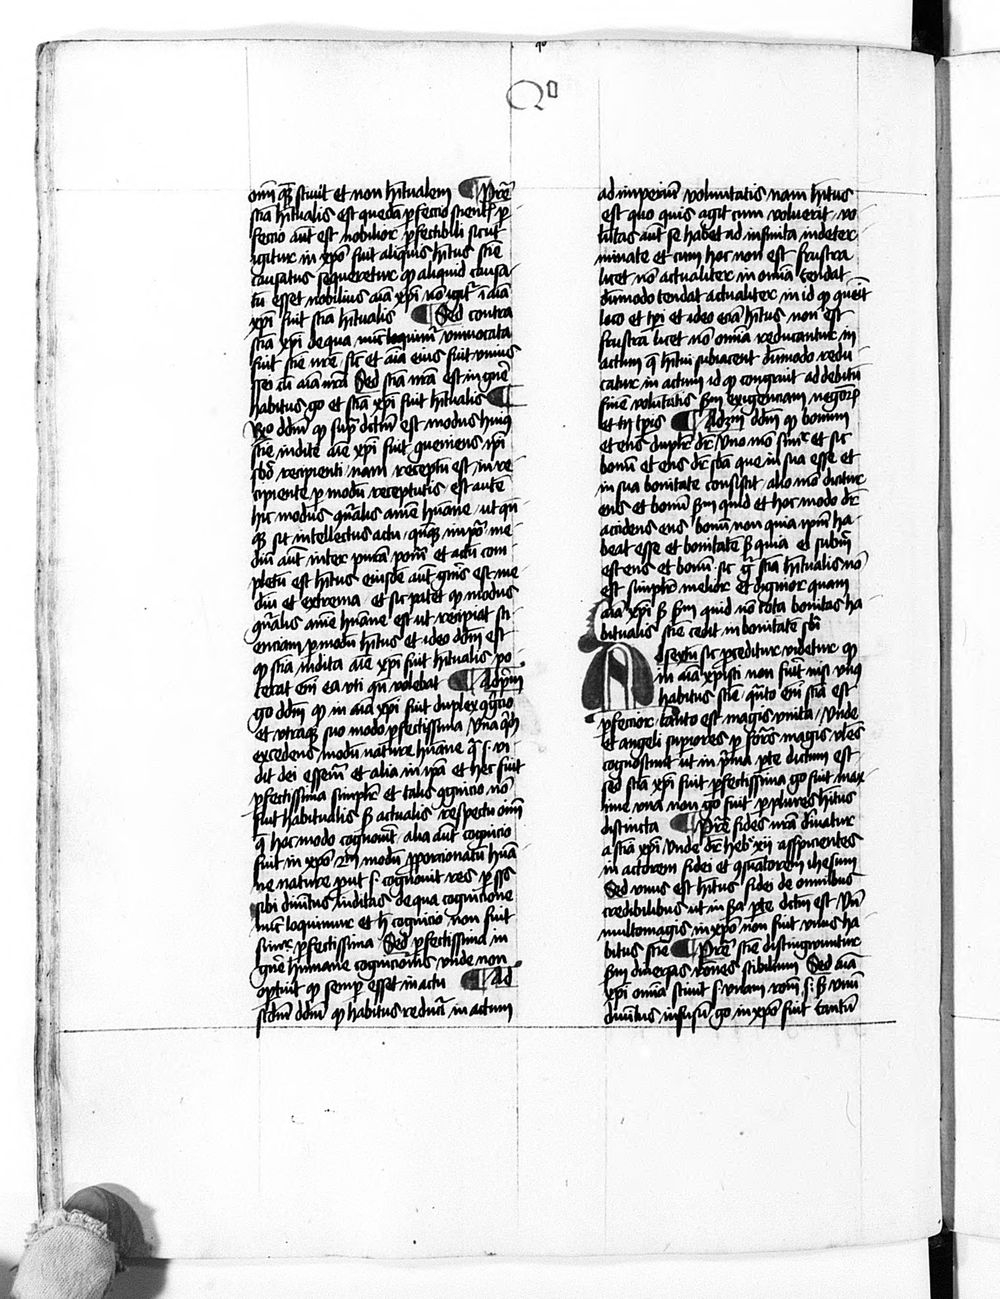 Qo
omnia que scivit et non habitualem ¶ Pretera
scia habitualis est quedam perfeccio scientis per
feccio autem est nobilior perfectibili si
igitur in xpo fuit aliquis habitus scientie
causatus sequeretur quod aliquid causa
tum esset nobilius anima xpi non igitur in anima
xpi fuit scia habitualis ¶ Sed contra
scia xpi de qua nunc loquimur univocata
fuit scientie nostre sicut et anima eius fuit unius
speciei cum anima nostra Sed scia nostra est in genere
habitus go et scia xpi fuit habitualis ¶
dicendum quod supra dictum est modus huius
scientie indite anime xpi fuit conveniens ipsi
subiecto recipienti nam receptum est in re
cipiente per modum recipientis est autem
hic modus connaturalis anime humane ut quandoque
sit intellectus actu quandoque in potencia me
dium autem inter puram potenciam et actum com
pletum est habitus eiusdem autem generis est me
dium et extrema et sic patet quod modus
connaturalis anime humane est ut recipiat sci
enciam per modum habitus et ideo dicendum est
quod scia indita anime xpi fuit habitualis po
terat enim ea uti quando volebat ¶ Ad primum
go dicendum quod in anima xpi fuit duplex cognicio
et utraque suo modo perfectissima Una quidem
excedens modum nature humane qua s. vi
dit dei essenciam et alia in ipsa et hec fuit
perfectissima simpliciter et talis cognicio non
fuit habitualis sed actualis respectu omnium
que hoc modo cognovit alia autem cognicio
fuit in xpo secundum modum proporcionatum huma
ne nature prout s. cognovit res per species
sibi divinitus inditas de qua cognicione
nunc loquimur et hec cognicio non fuit
simpliciter perfectissima Sed perfectissima in
genere humane cognicionis unde non
oportuit quod semper esset in actu ¶ Ad
secundum dicendum quod habitus reducitur in actum
ad imperium voluntatis nam habitus
est quo quis agit cum voluerit vo
luntas autem se habet ad infinita indeter
minate et cum hoc non est frustra
licet non actualiter in omnia tendat
dummodo tendat actualiter in id quod convenit
loco et tempori et ideo eciam habitus non est
frustra licet non omnia reducantur in
actum que habitui subiacent dummodo redu
catur in actum id quod congruit ad debitum
finem voluntatis secundum exigenciam negociorum
et temporis ¶ Ad tercium dicendum quod bonum
et ens dupliciter dicitur Uno modo simpliciter et sic
bonum et ens dicitur substancia que in suo esse et
in sua bonitate consistit alio modo dicitur
ens et bonum secundum quid et hoc modo dicitur
accidens ens bonum non quia ipsum ha
beat esse et bonitatem sed quia eius subiectum
est ens et bonum sic igitur scia habitualis non
est simpliciter melior et dignior quam
anima xpi sed secundum quid nam tota bonitas ha
bitualis scientie cedit in bonitatem subiecti
Ad sextum sic proceditur videtur quod
in anima xpisti non fuit nisi unus
habitus scientie quanto enim scia est
perfectior tanto est magis unita Unde
et angeli superiores per formas magis universales
cognoscunt ut in prima parte dictum est
sed scia xpi fuit perfectissima go fuit max
ime una non go fuit per plures habitus
distincta ¶ Preterea fides nostra derivatur
a scia xpi Unde dicitur heb xii asspicientes
in actorem fidei et consummatorem ihesum
Sed unus est habitus fidei de omnibus
credibilibus ut in secunda parte dictum est Unde
multomagis in xpo non fuit unus ha
bitus scientie ¶ Preterea scientie distinguuntur
secundum diversas raciones scibilium Sed anima
xpi omnia scivit s. unam racionem s. secundum lumen
divinitus infusum go in xpo fuit tantum